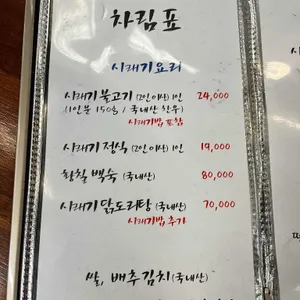 차림표
시래기요리
시래기 불고기 (2인이상) 1인 24,000
(1인분 150g / 국내산 한우)
시래기밥 포함
시래기 정식 (2인이상) 1인 19,000
황칠 백숙 (국내산) 80,000
시래기 닭도리탕 (국내산) 70,000
시래기밥 추가
쌀, 배추김치 (국내산)